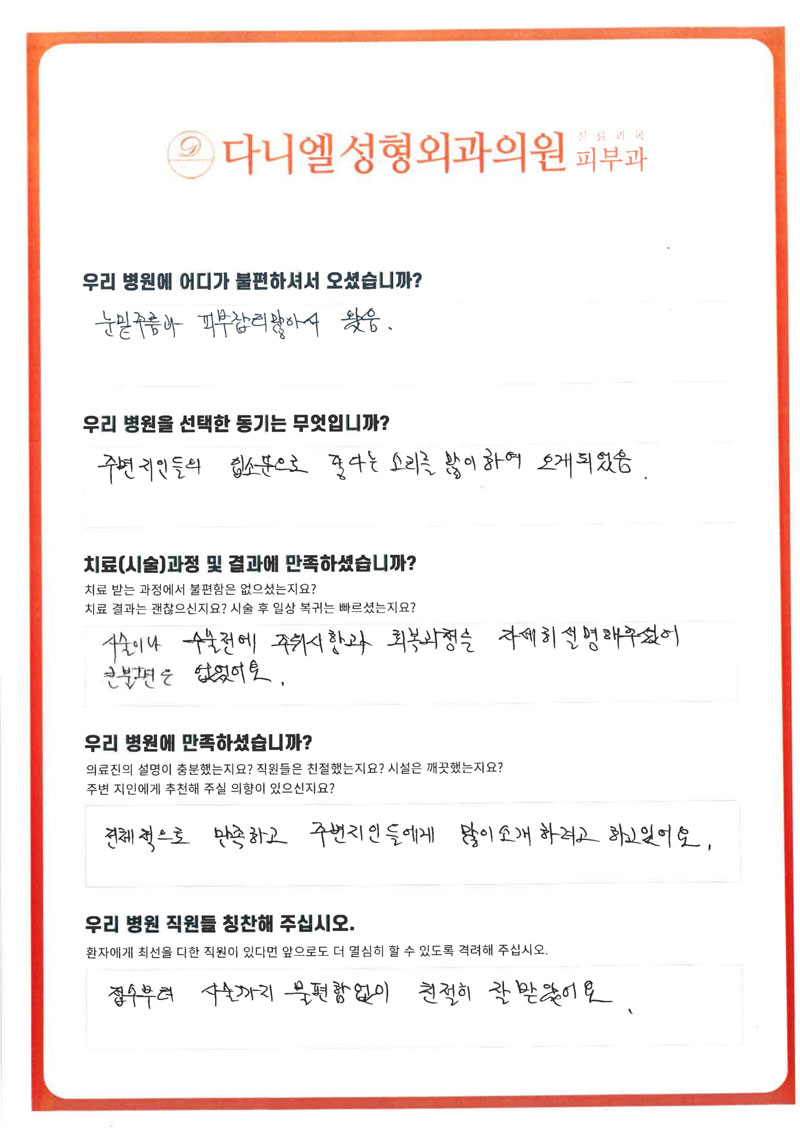 다니엘성형외과의원 진료과목 피부과
우리 병원에 어디가 불편하셔서 오셨습니까?
눈밑주름과 피부잡티많아서 왔음.
우리 병원을 선택한 동기는 무엇입니까?
주변지인들의 입소문으로 좋다는 소리를 많이하여 오게되었음.
치료(시술)과정 및 결과에 만족하셨습니까?
치료 받는 과정에서 불편함은 없으셨는지요?
치료 결과는 괜찮으신지요? 시술 후 일상 복귀는 빠르셨는지요?
시술이나 수술전에 주위사항과 회복과정을 자세히설명해주셨어
큰불편은 없었어요.
우리 병원에 만족하셨습니까?
의료진의 설명이 충분했는지요? 직원들은 친절했는지요? 시설은 깨끗했는지요?
주변 지인에게 추천해 주실 의향이 있으신지요?
전체적으로 만족하고 주변지인들에게 많이소개하려고 하고있어요.
우리 병원 직원들 칭찬해 주십시오.
환자에게 최선을 다한 직원이 있다면 앞으로도 더 열심히 할 수 있도록 격려해 주십시오.
접수부터 시술까지 불편함없이 친절히 잘받았어요.